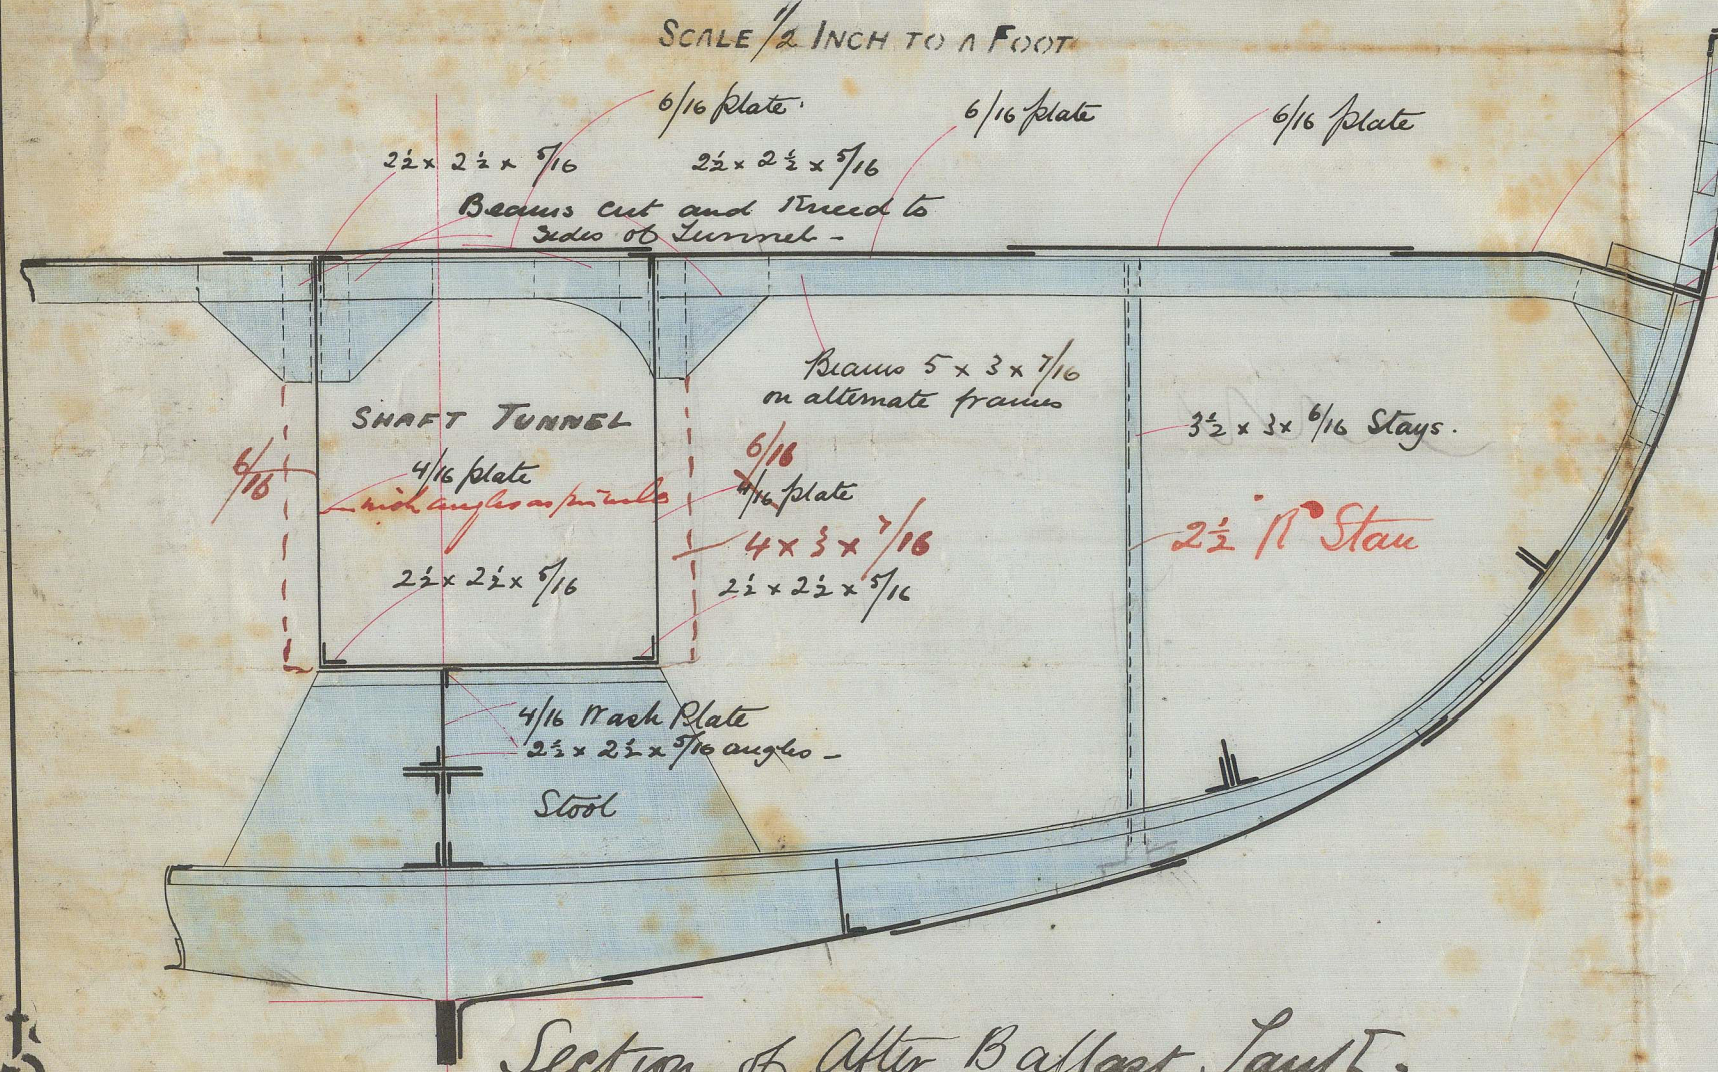 SCALE 1/2 INCH TO A FOOT
6/16 plate.
6/16 plate
6/16 plate
2½ x 2½ x 5/16
2½ x 2½ x 5/16
Beams cut and Kneed to
sides of Tunnel -
Beams 5 x 3 x 7/16
on alternate frames
SHAFT TUNNEL
3½ x 3 x 6/16 Stays.
6/16
4/16 plate
with angles as
6/16
4/16 plate
2½ Rd Stan
4 x 3 x 7/16
2½ x 2½ x 5/16
2½ x 2½ x 5/16
4/16 Wash Plate
2½ x 2½ x 5/16 angles -
Stool
Section of After Ballast Tank.